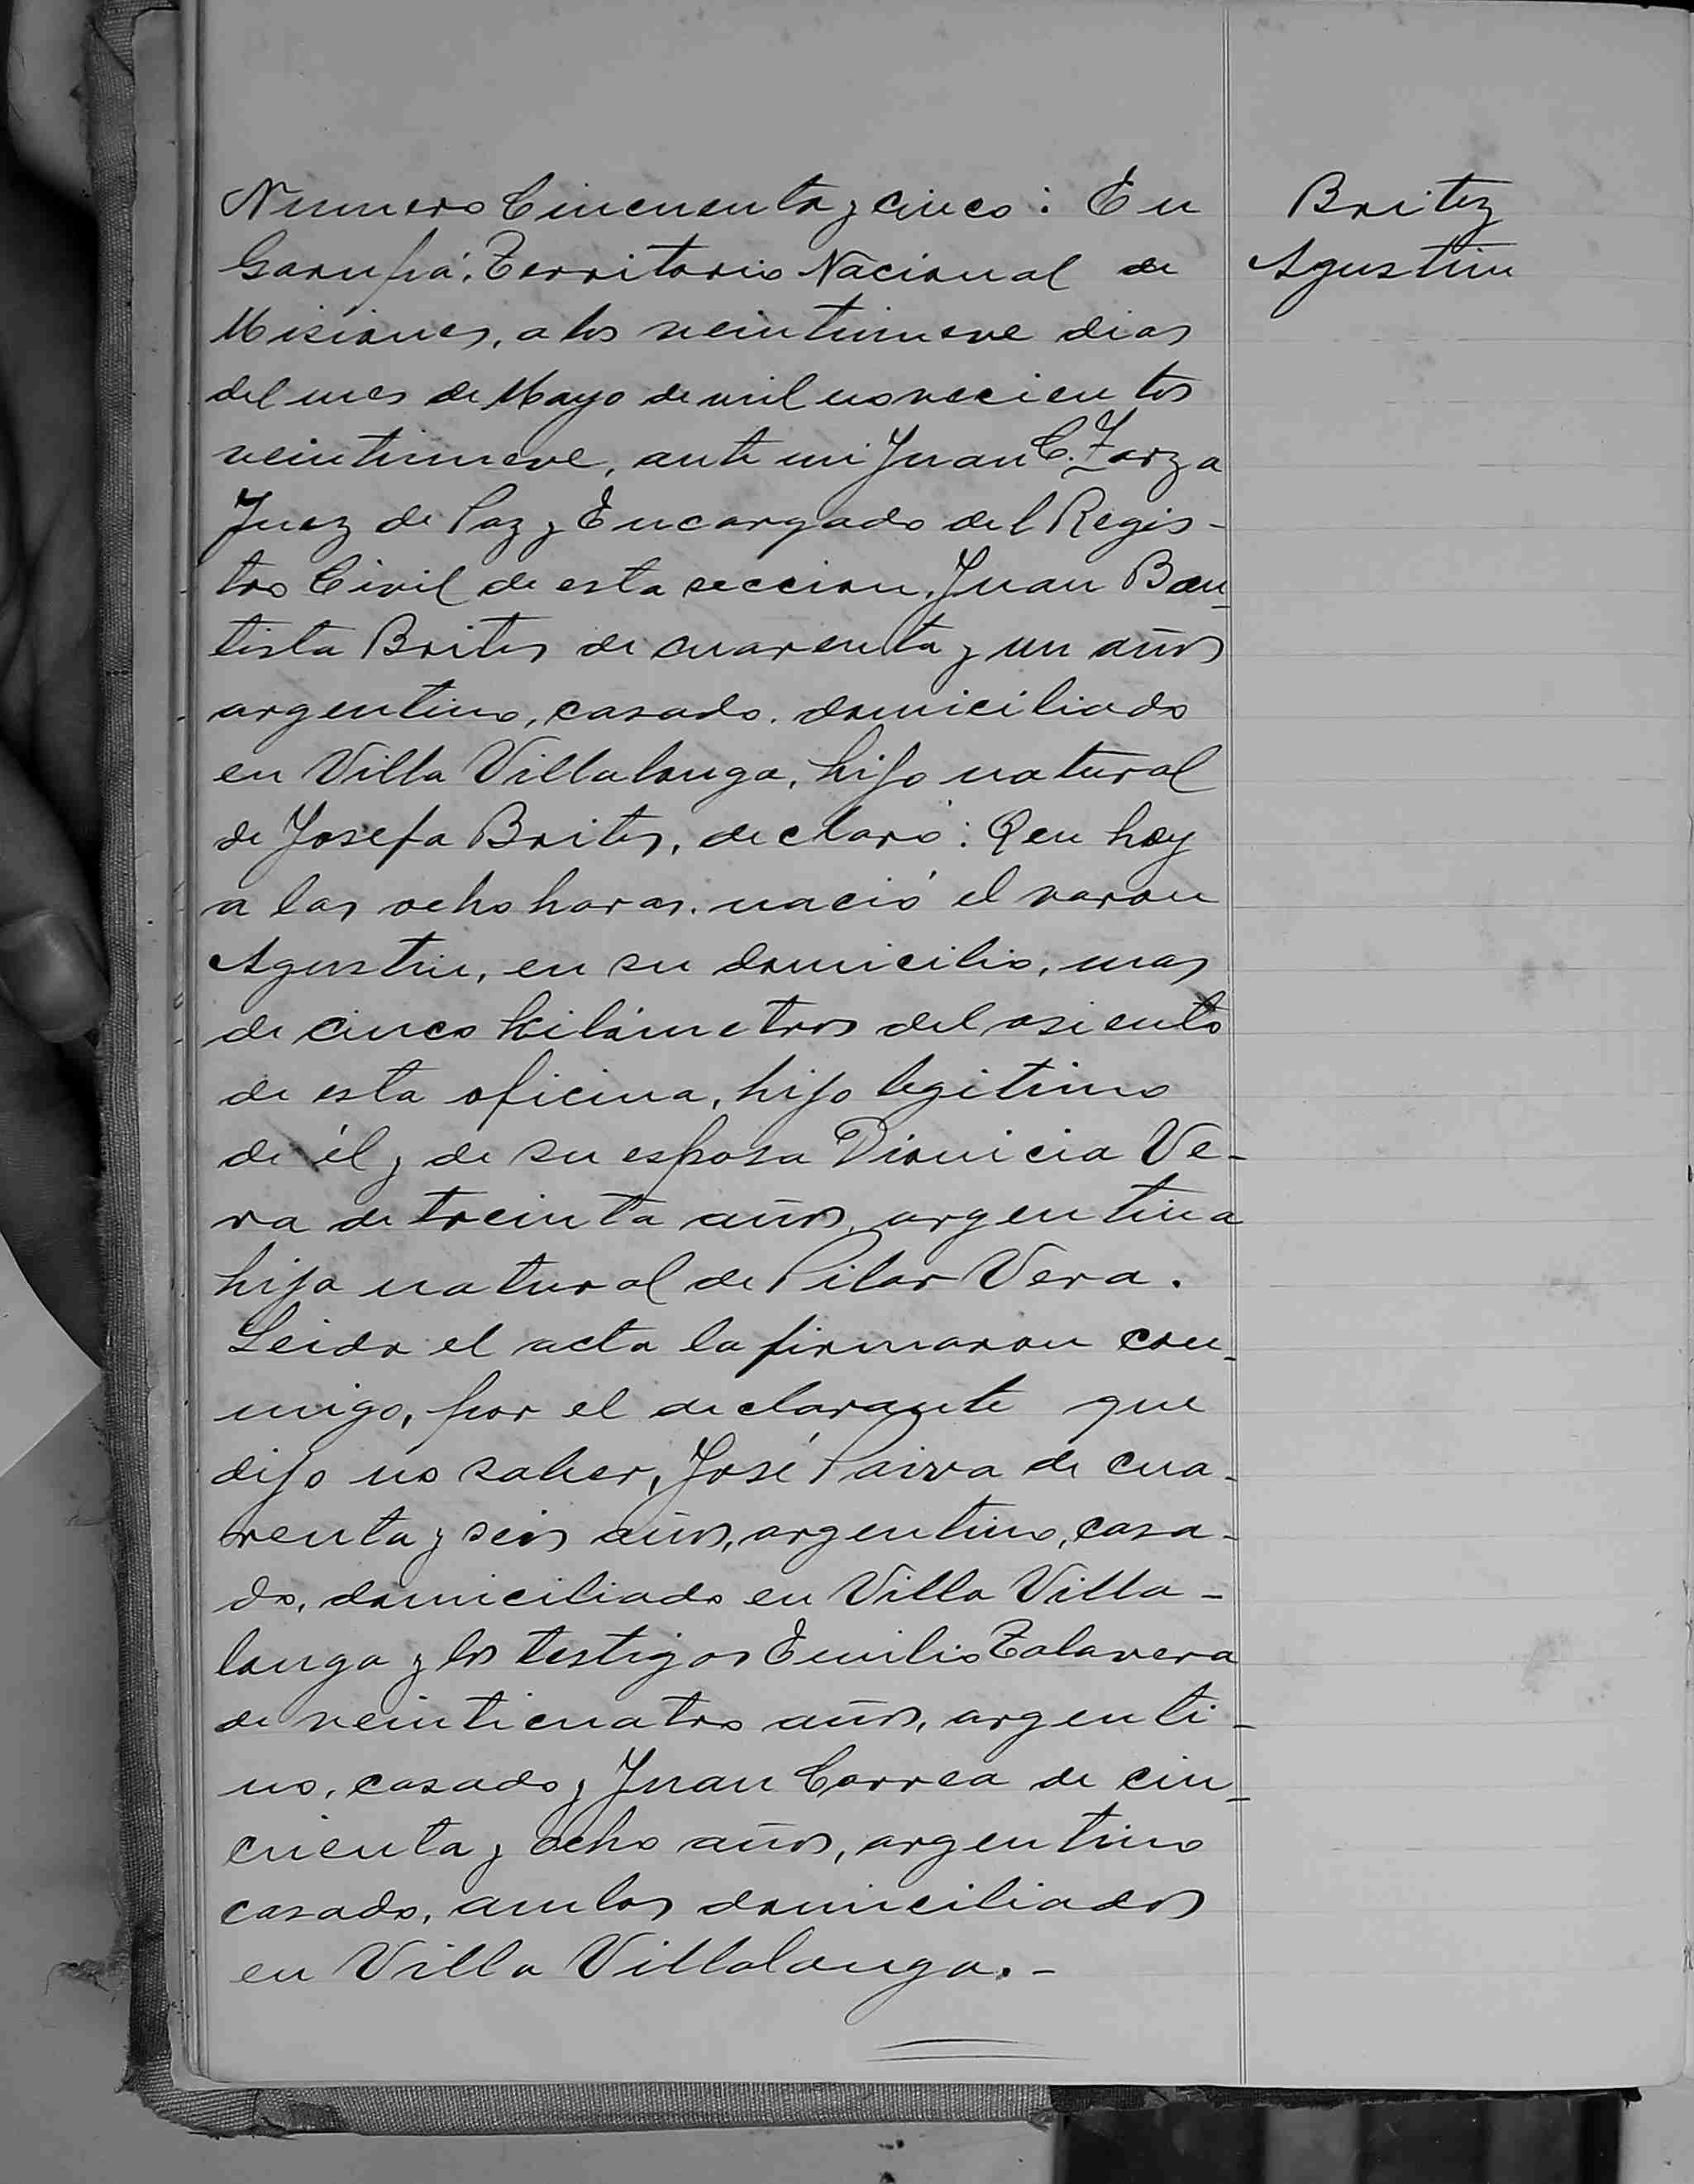 Numero Cincuenta y cinco: En
Garupá, Territorio Nacional de
Misiones, a los veintinueve dias
del mes de Mayo de mil novecientos
veintinueve, ante mi Juan C. Zarza
Juez de Paz y Encargado del Regis-
tro Civil de esta seccion, Juan Bau-
tista Brites de cuarenta y un años
argentino, casado, domiciliado
en Villa Villalonga, hijo natural
de Josefa Brites, declaró: Que hoy
a las ocho horas nació el varon
Agustin, en su domicilio, mas
de cinco kilómetros del asiento
de esta oficina, hijo legitimo
de él y de su esposa Dionicia Ve-
ra de treinta años, argentina
hija natural de Pilar Vera.
Leida el acta la firmaron con-
migo, por el declarante que
dijo no saber, José Paiva de cua-
renta y seis años, argentino, casa-
do, domiciliado en Villa Villa-
longa y los testigos Emilio Talavera
de veinticuatro años, argenti-
no, casado y Juan Correa de cin-
cuenta y ocho años, argentino
casado, ambos domiciliados
en Villa Villalonga.-
Britez
Agustin